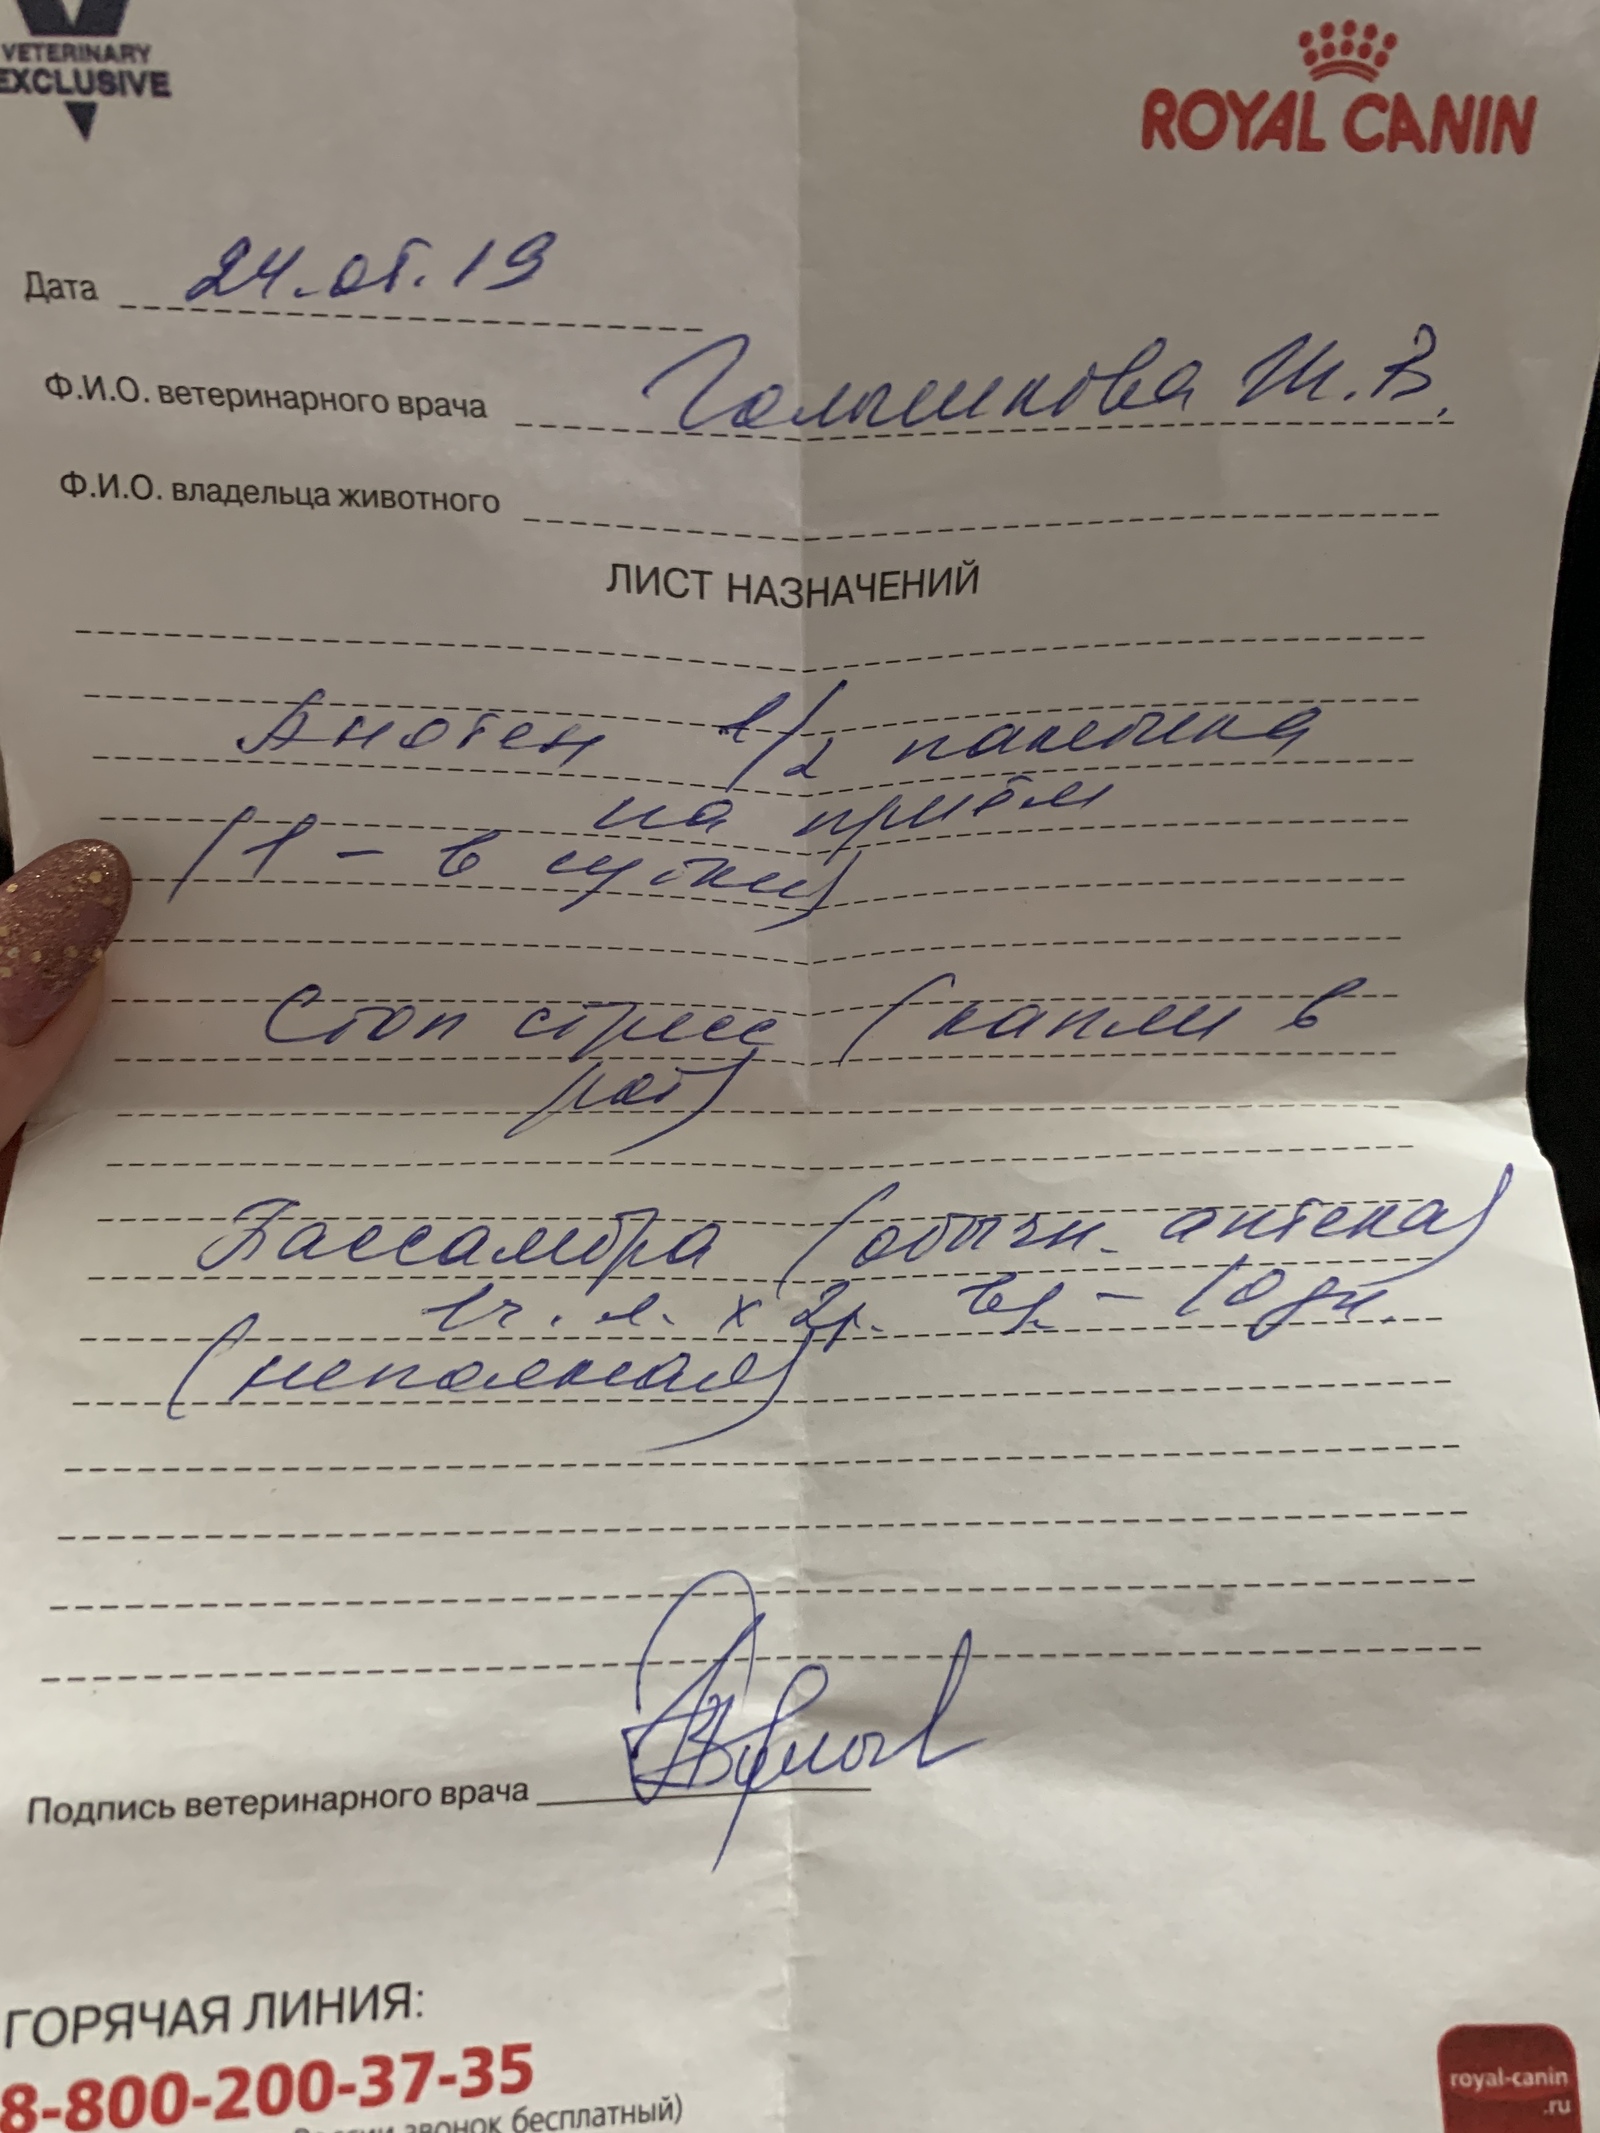 VETERINARY
EXCLUSIVE
ROYAL CANIN
Дата 24.07.19
Ф.И.О. ветеринарного врача Голышкова Ж.В.
Ф.И.О. владельца животного
ЛИСТ НАЗНАЧЕНИЙ
Анотен 1/2 пакетика
на приём
(1 - в сутки)
Стоп стресс (капли в
рот)
Пассамбра (обычн. аптека)
1 ч. л. х 2р. вд. - 10 дн.
(неполная)
Подпись ветеринарного врача
ГОРЯЧАЯ ЛИНИЯ:
8-800-200-37-35
России звонок бесплатный)
royal-canin
.ru